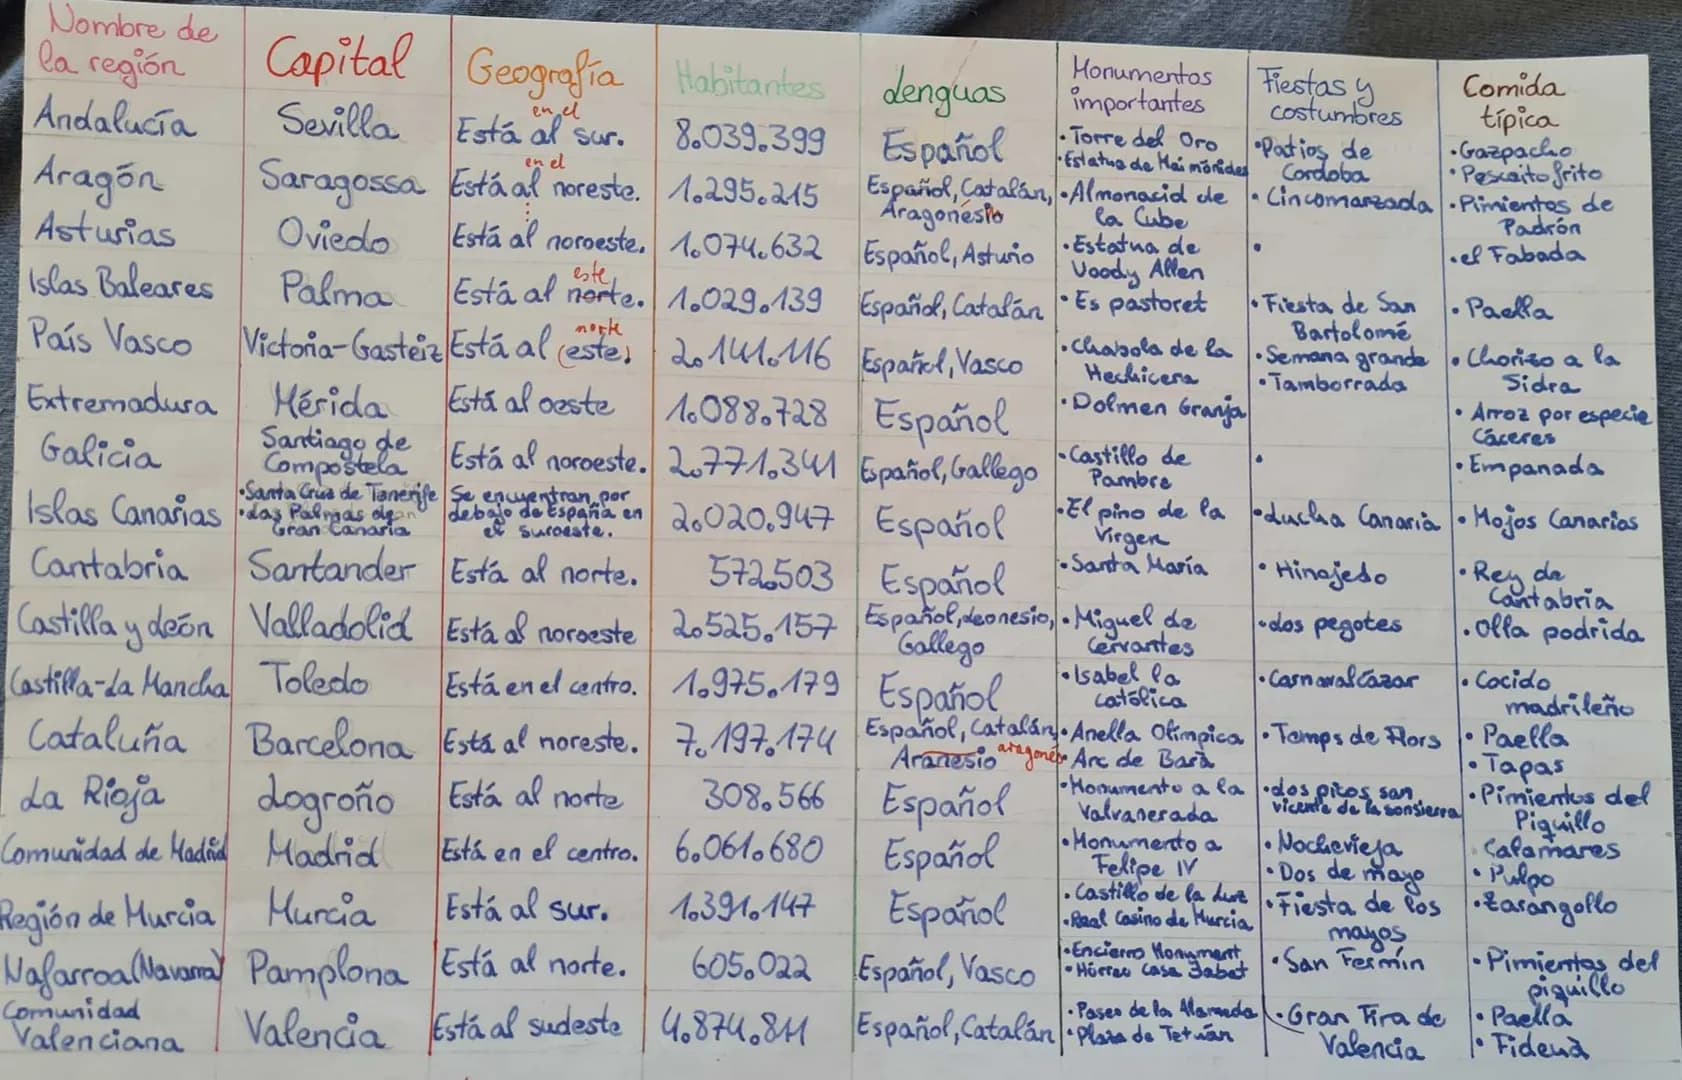 Nombre de la región | Capital | Geografía | Habitantes | Lenguas | Monumentos importantes | Fiestas y costumbres | Comida típica
Andalucía | Sevilla | Está al en el sur. | 8.039.399 | Español | •Torre del Oro •Estatua de Maimónides | •Patios de Cordoba | •Gazpacho •Pescaito frito
Aragón | Saragossa | Está al en el noreste. | 1.295.215 | Español, Catalán, Aragonésio | •Almonacid de la Cube | •Cincomarzada | •Pimientos de Padrón
Asturias | Oviedo | Está al noroeste. | 1.074.632 | Español, Asturio | •Estatua de Voody Allen | • | •el Fabada
Islas Baleares | Palma | Está al norte. este | 1.029.139 | Español, Catalán | •Es pastoret | •Fiesta de San Bartolomé | •Paella
País Vasco | Victoria-Gasteiz | Está al (este. norte | 2.141.116 | Español, Vasco | •Chabola de la Hechicera | •Semana grande •Tamborrada | •Chorizo a la Sidra
Extremadura | Mérida | Está al oeste | 1.088.728 | Español | •Dolmen Granja | •Arroz por especie Cáceres
Galicia | Santiago de Compostela | Está al noroeste. | 2.771.341 | Español, Gallego | •Castillo de Pambre | • | •Empanada
Islas Canarias | •Santa Cruz de Tenerife •Las Palmas de Gran Canaria | Se encuentran por debajo de España en el suroeste. | 2.020.947 | Español | •El pino de la Virgen | •Lucha Canaria | •Mojos Canarias
Cantabria | Santander | Está al norte. | 572.503 | Español | •Santa María | •Hinojedo | •Rey de Cantabria
Castilla y León | Valladolid | Está al noroeste | 2.525.157 | Español, Leonesio, Gallego | •Miguel de Cervantes | •Los pegotes | •Olla podrida
Castilla-La Mancha | Toledo | Está en el centro. | 1.975.179 | Español | •Isabel la católica | •Carnavalcázar | •Cocido madrileño
Cataluña | Barcelona | Está al noreste. | 7.197.174 | Español, Catalán, Aranesio aragonés | •Anella Olímpica •Arc de Barà | •Temps de Flors | •Paella •Tapas
La Rioja | Logroño | Está al norte | 308.566 | Español | •Monumento a la Valvanerada | •Los picos san vicente de la sonsierra | •Pimientos del Piquillo
Comunidad de Madrid | Madrid | Está en el centro. | 6.061.680 | Español | •Monumento a Felipe IV | •Nochevieja •Dos de mayo | •Calamares •Pulpo
Región de Murcia | Murcia | Está al sur. | 1.391.147 | Español | •Castillo de la Luz •Real Casino de Murcia | •Fiesta de los mayos | •Zarangollo
Nafarroa (Navarra) | Pamplona | Está al norte. | 605.022 | Español, Vasco | •Encierro Monument •Hórreo Casa Jabat | •San Fermín | •Pimientos del piquillo
Comunidad Valenciana | Valencia | Está al sudeste | 4.874.811 | Español, Catalán | •Paseo de la Alameda •Plaza de Tetuán | •Gran Fira de Valencia | •Paella •Fideuà